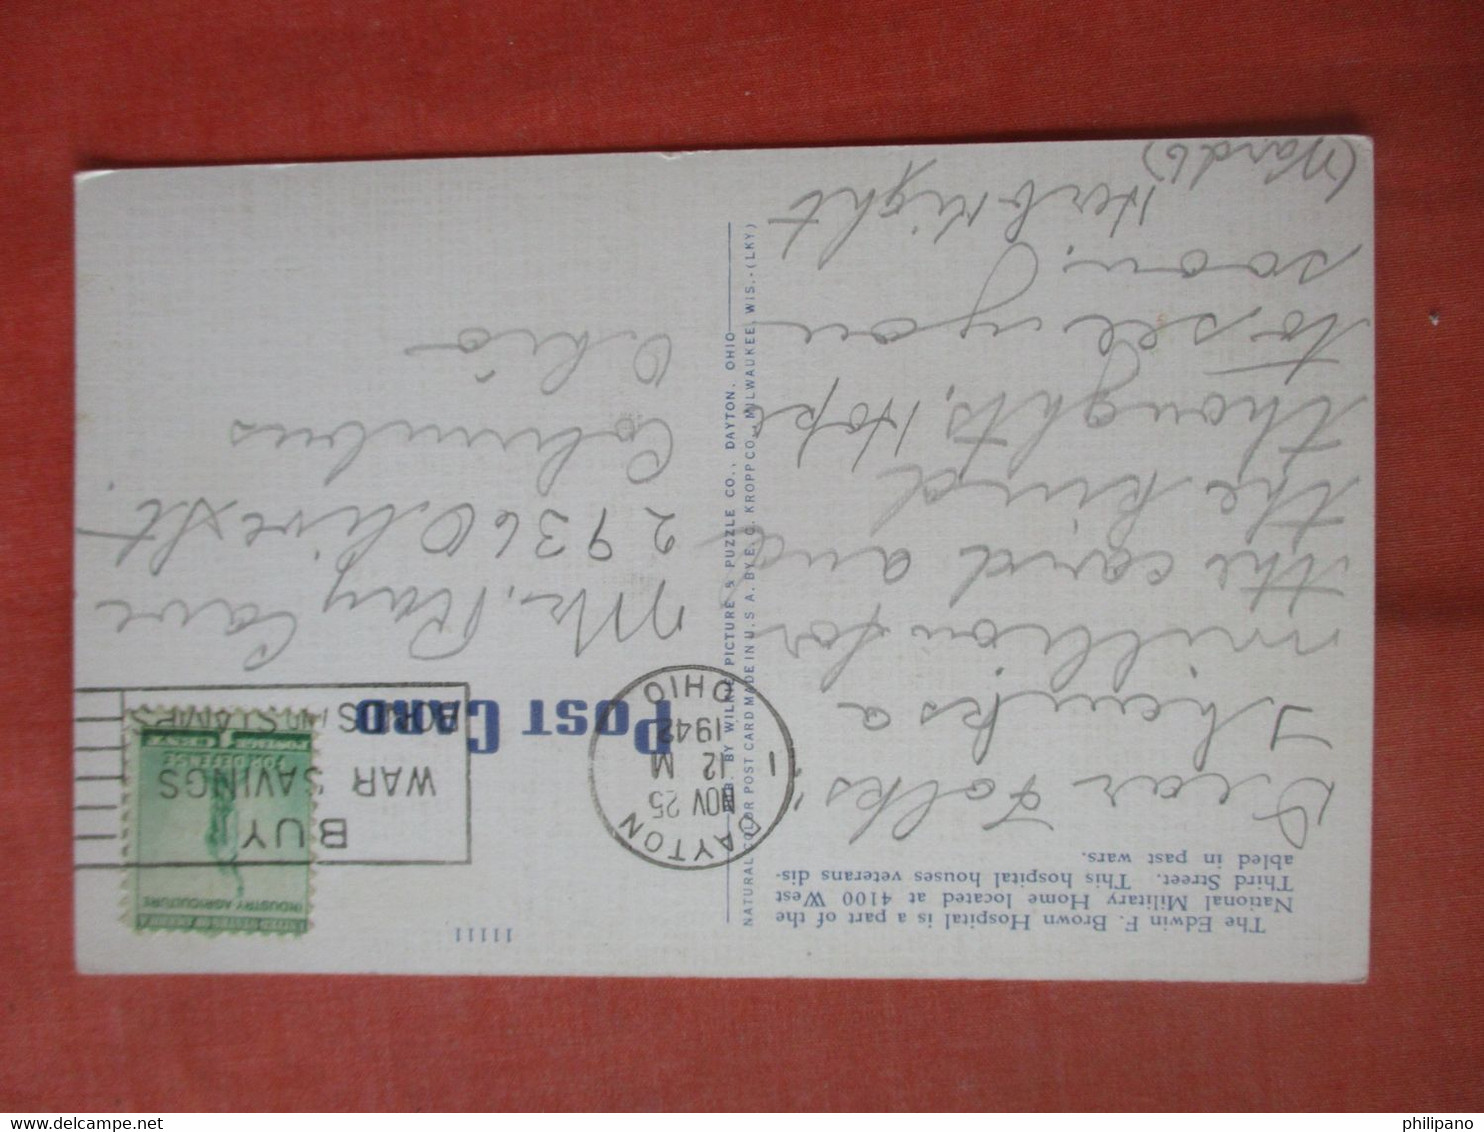 The Edwin F. Brown Hospital is a part of the
National Military Home located at 4100 West
Third Street. This hospital houses veterans dis-
abled in past wars.
Dear Folks:
Thanks a
million for
the card and
the kind
thoughts, Hope
to see you
soon,
Herb Hight
(Ward 6)
PUB. BY WILKIE PICTURE & PUZZLE CO., DAYTON, OHIO
NATURAL COLOR POST CARD MADE IN U.S.A. BY E. C. KROPP CO., MILWAUKEE, WIS.-(LKY)
11111
POST CARD
DAYTON
1
NOV 25
12 M
1942
OHIO
BUY
WAR SAVINGS
BONDS AND STAMPS
UNITED STATES OF AMERICA
INDUSTRY AGRICULTURE
FOR DEFENSE
POSTAGE
1 CENT
Mr. Ray Cave
2936 Olive St.
Columbus
Ohio
philipano